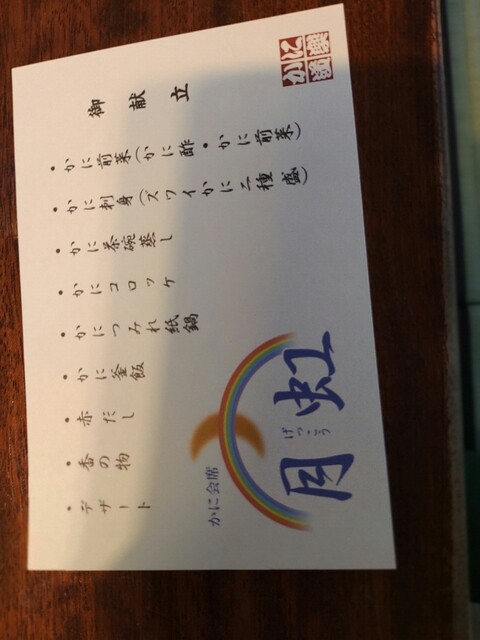 御献立
・かに前菜(かに酢・かに前菜)
・かに刺身(ズワイかに二種盛)
・かに茶碗蒸し
・かにコロッケ
・かにつみれ紙鍋
・かに釜飯
・赤だし
・香の物
・デザート
かに会席
月虹
げっこう
かに
道楽